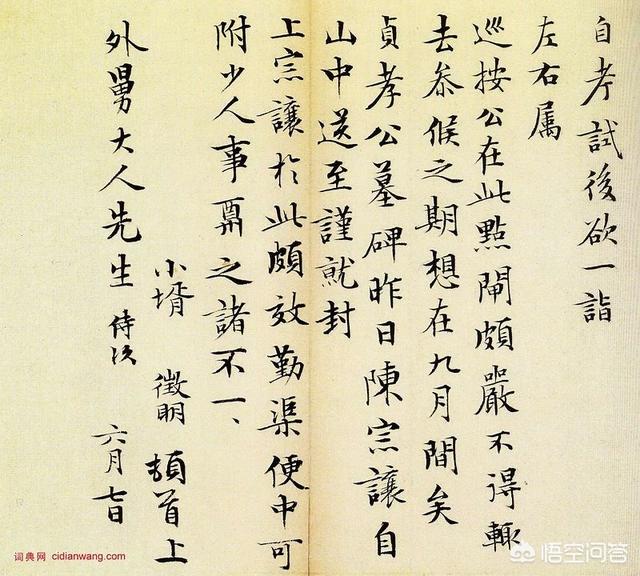 自考試後欲一詣
左右属
巡按公在此點閘頗嚴不得輙
去叅候之期想在九月間矣
貞孝公墓碑昨日陳宗讓自
山中送至謹就封
上宗讓於此頗效勤渠便中可
附少人事覉之諸不一、
小壻 徵明 頓首上
外舅大人先生 侍次
六月七日
词典网 cidianwang.com
悟空问答